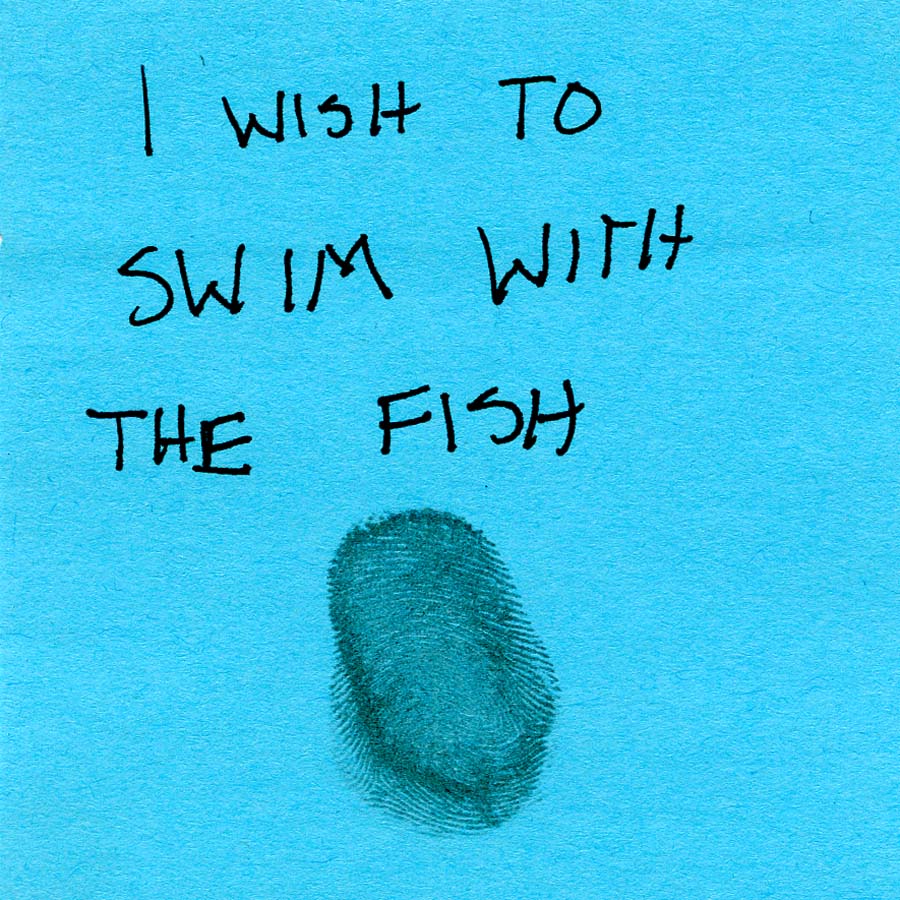 I WISH TO
SWIM WITH
THE FISH